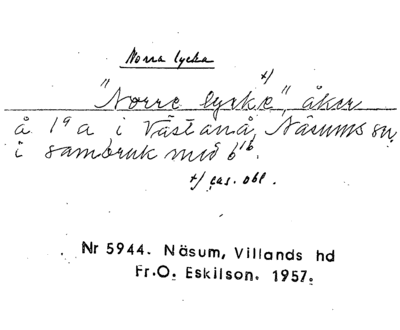 Norra lycka
x/
"Norre lycke", åker
å 1ª a i Västanå, Näsums sn,
i sambruk med 6ᵇ.
x/ cas. obl.
Nr 5944. Näsum, Villands hd
Fr.O. Eskilson. 1957.